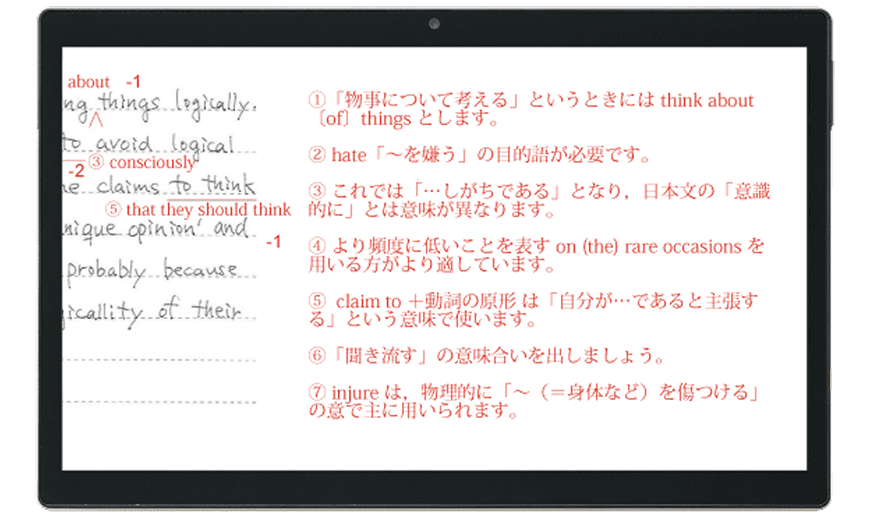 about -1
ng things logically.
to avoid logical
③ consciously
-2
e claims to think
⑤ that they should think
nique opinion' and
-1
probably because
gicallity of their
①「物事について考える」というときには think about
〔of〕things とします。
② hate「〜を嫌う」の目的語が必要です。
③ これでは「…しがちである」となり，日本文の「意識
的に」とは意味が異なります。
④ より頻度に低いことを表す on (the) rare occasions を
用いる方がより適しています。
⑤ claim to ＋動詞の原形 は「自分が…であると主張す
る」という意味で使います。
⑥「聞き流す」の意味合いを出しましょう。
⑦ injure は，物理的に「〜（＝身体など）を傷つける」
の意で主に用いられます。